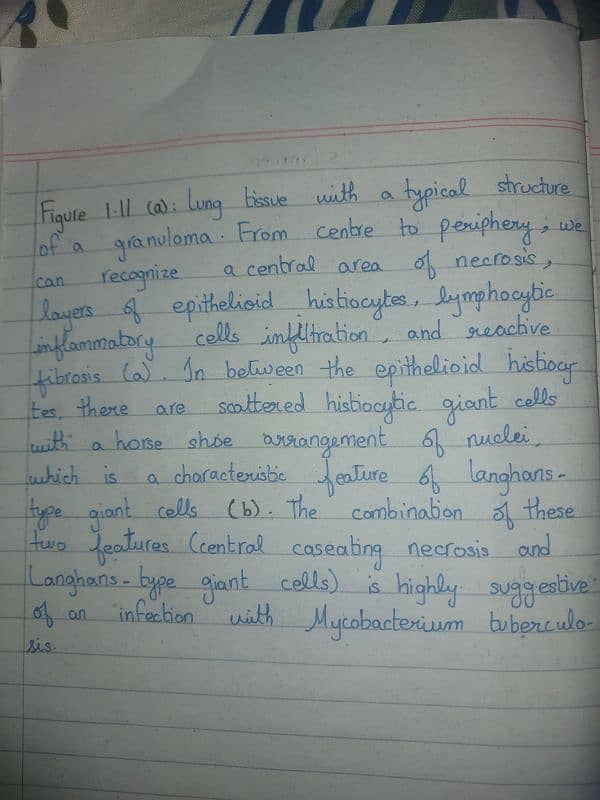 Figure 1.11 (a): Lung tissue with a typical structure
of a granuloma. From centre to periphery, we
can recognize a central area of necrosis,
layers of epithelioid histiocytes, lymphocytic
inflammatory cells infiltration, and reactive
fibrosis (a). In between the epithelioid histiocy
tes, there are scattered histiocytic giant cells
with a horse shoe arrangement of nuclei,
which is a characteristic feature of langhans-
type giant cells (b). The combination of these
two features (central caseating necrosis and
Langhans-type giant cells) is highly suggestive
of an infection with Mycobacterium tuberculo-
sis.